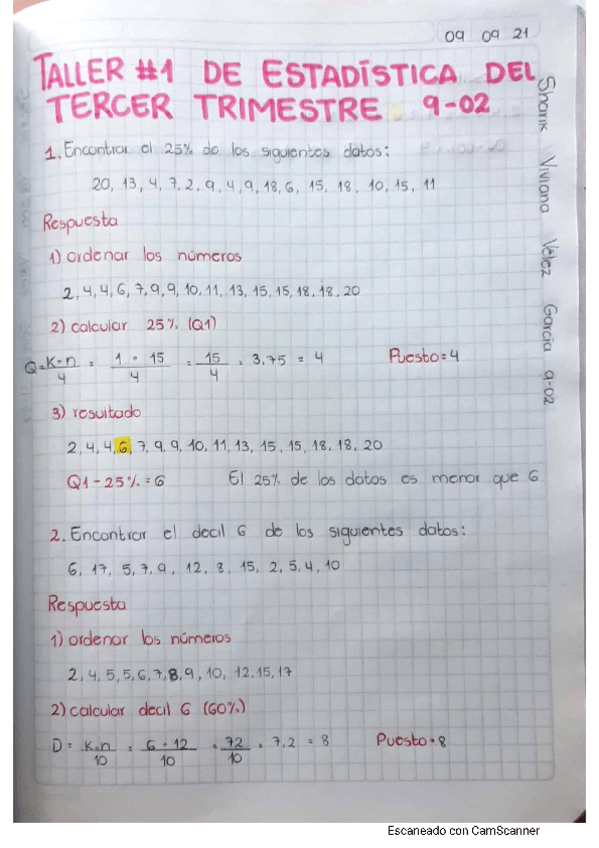 09 09 21
TALLER #1 DE ESTADÍSTICA DEL
TERCER TRIMESTRE 9-02
Sharik Viviana Velez Garcia 9-02
1. Encontrar el 25% de los siguientes datos:
20, 13, 4, 7, 2, 9, 4, 9, 18, 6, 15, 18, 10, 15, 11
Respuesta
1) ordenar los números
2, 4, 4, 6, 7, 9, 9, 10, 11, 13, 15, 15, 18, 18, 20
2) calcular 25% (Q1)
Q = K·n/4 = 1·15/4 = 15/4 = 3.75 = 4 Puesto = 4
3) resultado
2, 4, 4, 6, 7, 9, 9, 10, 11, 13, 15, 15, 18, 18, 20
Q1 - 25% = 6 El 25% de los datos es menor que 6
2. Encontrar el decil 6 de los siguientes datos:
6, 17, 5, 7, 9, 12, 8, 15, 2, 5, 4, 10
Respuesta
1) ordenar los números
2, 4, 5, 5, 6, 7, 8, 9, 10, 12, 15, 17
2) calcular decil 6 (60%)
D = K·n/10 = 6·12/10 = 72/10 = 7,2 = 8 Puesto = 8
Escaneado con CamScanner